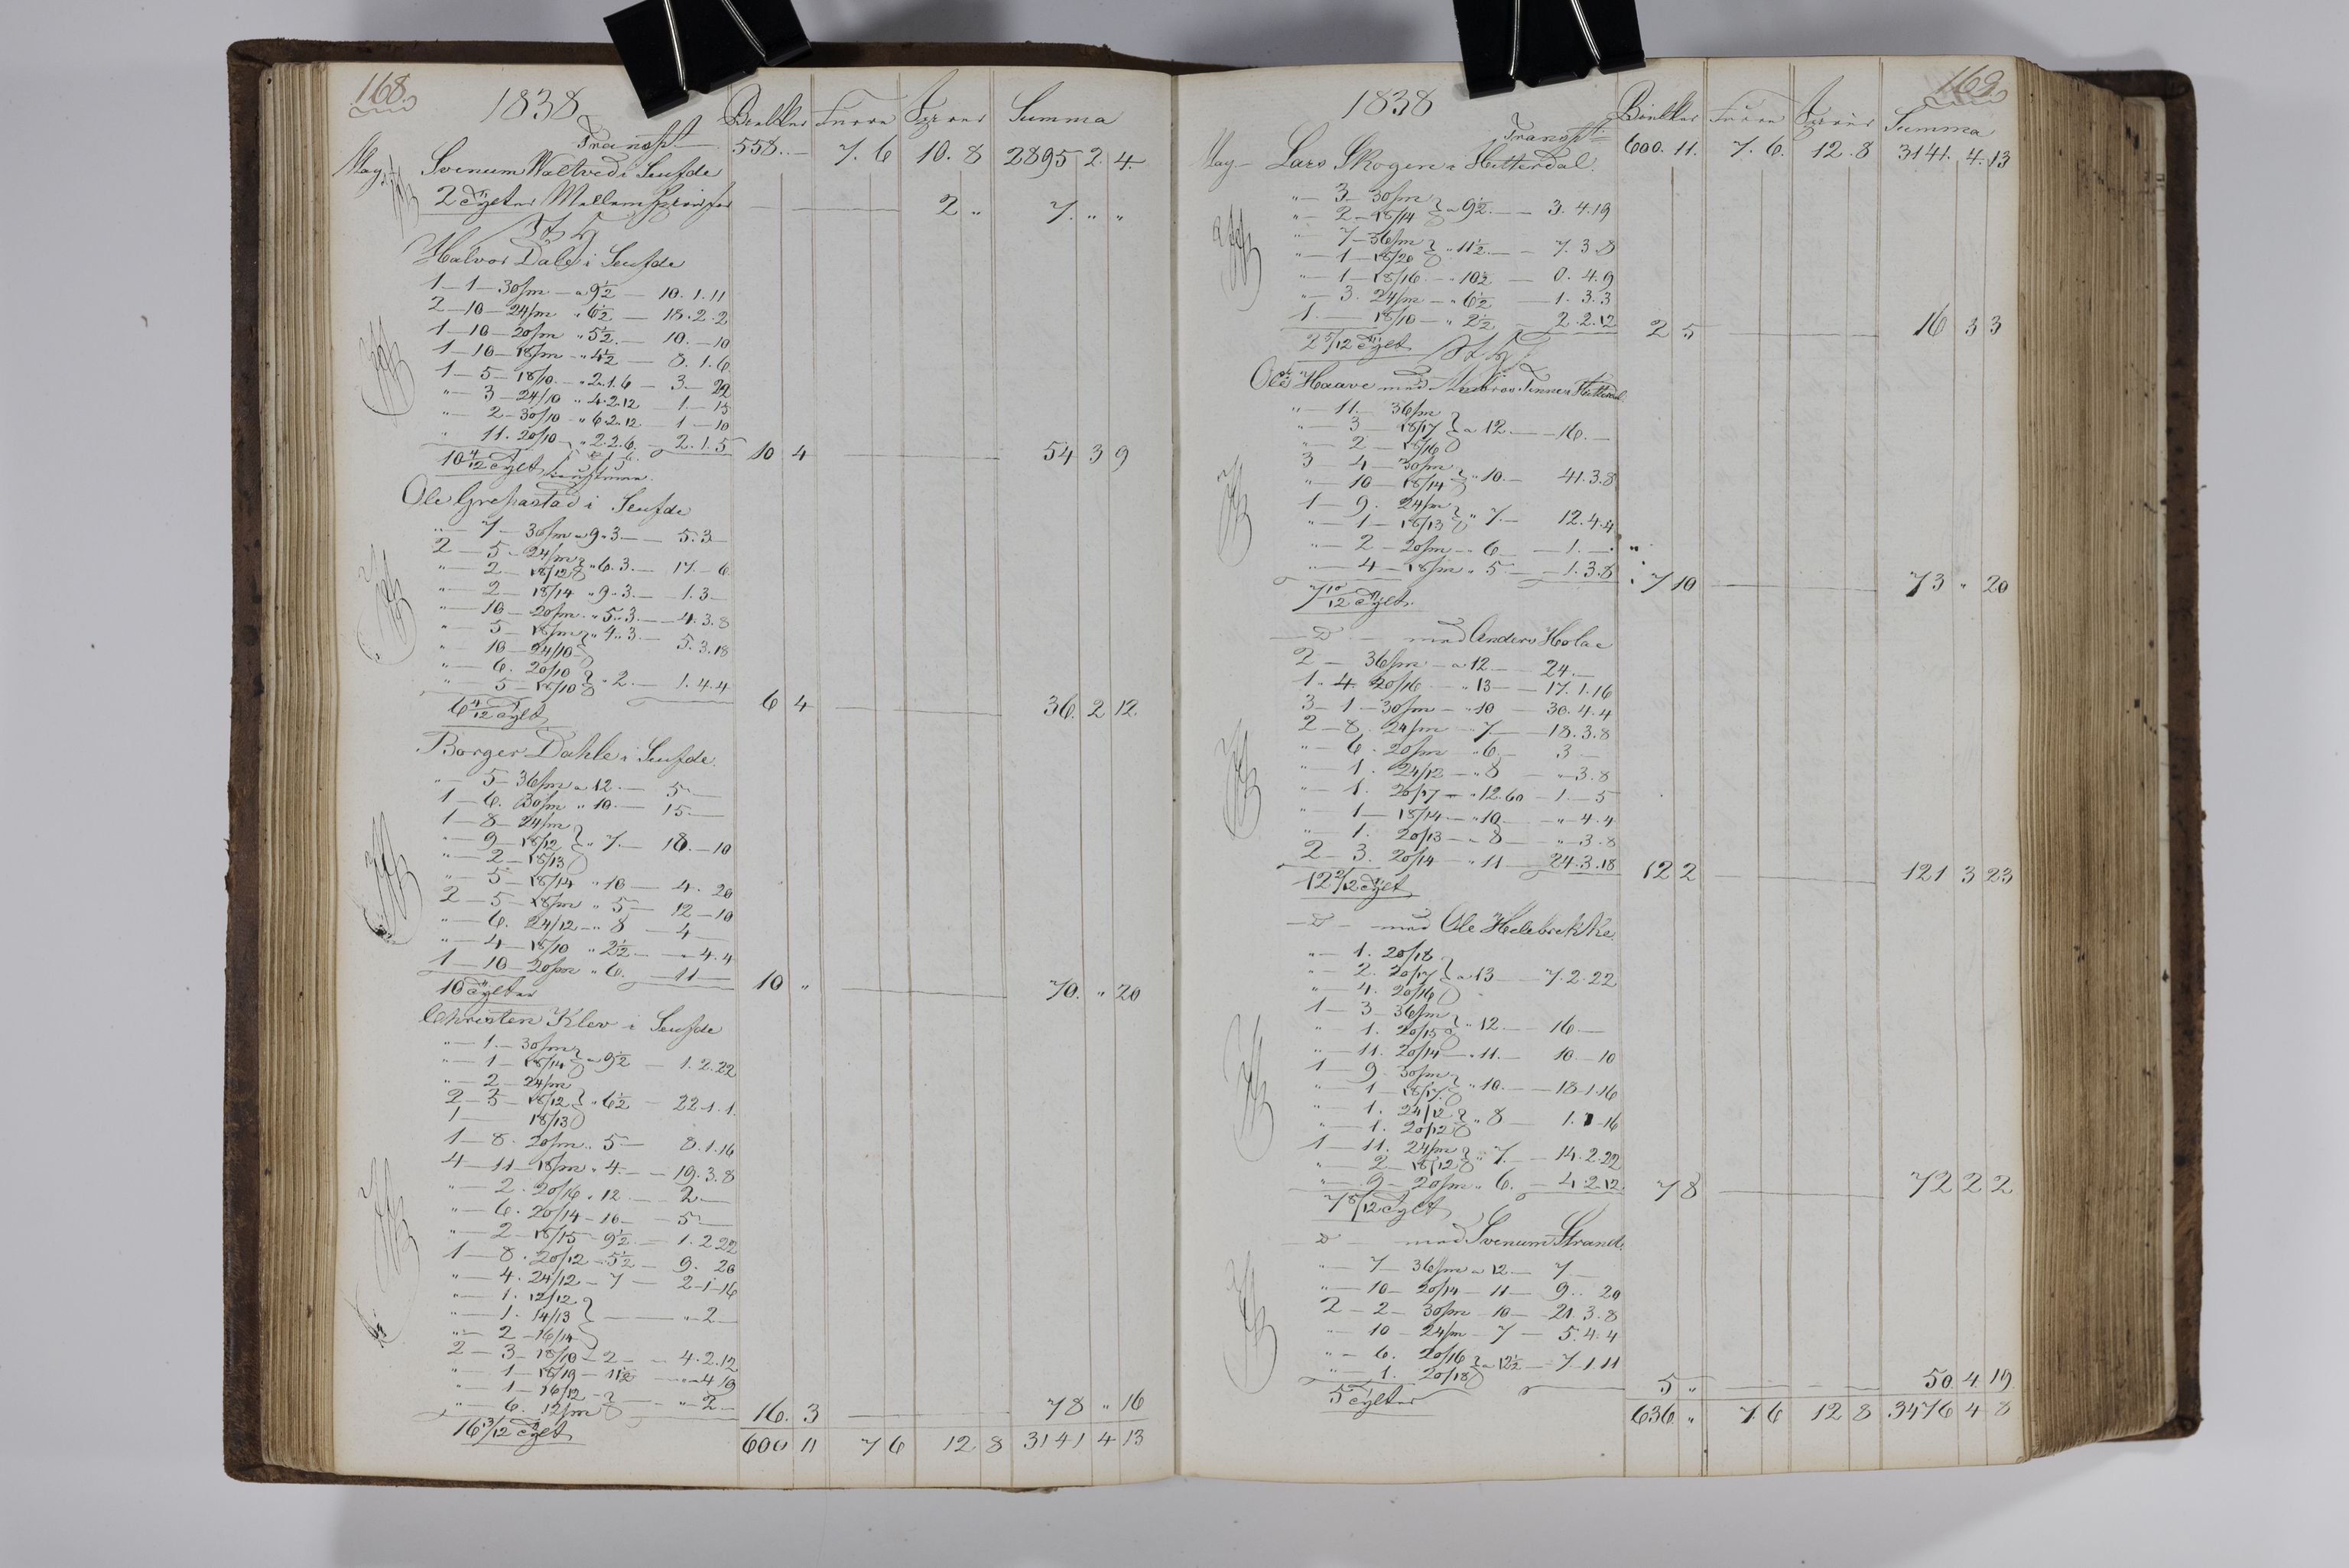 168.
1838
Bielker Furer Sperrer Summa
Transpt. 558.. — 7. 6 10. 8 2895 2. 4.
May Svenum Valtved i Seufde
2 Tylter Mellem — — 2 „ 7. „ „
Halvor Dale i Seufde
1 — 1 — 30/m — a 9½ — 10. 1. 11
2 — 10 — 24/m „ 6½ — 18. 2. 2
1 — 10 — 20/m „ 5½ — 10. — 10
1 — 10 — 18/m — „ 4½ — 8. 1. 6
1 — 5 — 18/10 — „ 2. 1. 6 — 3 — 22
„ — 3 — 24/10 „ 4. 2. 12 — 1. — 15
„ — 2 — 30/10 — „ 6. 2. 12 — 1 — 10
„ 11. 20/10 — „ 2. 2. 6. — 2. 1. 5
10 4/12 Tylt 10 4 — 54 3 9
Ole Grefsastad i Seufde
„ — 7 — 30/m „ 9. 3 — 5. 3 —
2 — 5 — 24/m
„ — 2 — 18/12 } „ 6. 3. — 17. — 6
„ — 2 — 18/14 „ 9. 3. — 1. 3 —
„ — 10 — 20/m „ 5. 3. — 4. 3. 8
„ — 5 — 18/m „ 4. 3 —
„ 10 — 24/10 } 5. 3. 18
„ — 6. 20/10
„ — 5 — 18/10 } „ 2. — 1. 4. 4
6 4/12 Tylt 6 4 — 36. 2 12.
Borger Dahle i Seufde
„ — 5 — 36/m a 12. — 5 —
1 — 6. 30/m „ 10. — 15. —
1 — 8 — 24/m
„ — 9 — 18/12 } „ 7. — 18. — 10
„ — 2 — 18/13
„ — 5 — 18/14 „ 10 — 4. 20
2 — 5 — 18/m „ 5 — 12 — 10
„ — 6. 24/12 — „ 8 — 4 —
„ — 4 — 18/10 „ 2½ — „ 4. 4
1 — 10 — 20/m „ 6. — 11 —
10 Tylter 10 „ — 70. „ 20
Christen Klev i Seufde
„ — 1. — 30/m
„ — 1 — 18/14 } a 9½ — 1. 2. 22
„ — 2 — 24/m
2 — 3 — 18/12 } „ 6½ — 22. 1. 1.
1 — 18/13
1 — 8. 20/m „ 5 — 8. 1. 16
4 — 11 — 18/m „ 4. — 19. 3. 8
„ — 2. 20/16 „ 12. — 2 —
„ — 6. 20/14 — 10 — 5 —
„ — 2 — 18/15 — 9½ — 1. 2. 22
1 — 8. 20/12 — 5½ — 9. 20
„ — 4. 24/12 — 7 — 2 — 1 — 16
„ — 1. 12/12
„ — 1. 14/13 } — „ 2 —
„ — 2 — 16/14
2 — 3 — 18/10 — 2 — 4. 2. 12
„ — 1 — 18/19 — 11½ — „ 4 19
„ — 1 — 16/12
„ — 6. 12/m } — „ 2 —
16 3/12 Tylt 16. 3 — 78 „ 16
600 11 7 6 12 8 3141 4 13
169.
1838
Bielker Furer Sperrer Summa
Transpt. 600. 11. 7. 6. 12. 8 3141. 4. 13
May — Lars Skogen i Hitterdal.
„ — 3 — 30/m
„ — 2 — 18/14 } a 9½ — 3. 4. 19
„ — 7 — 36/m
„ — 1 — 18/20 } „ 11½ — 7. 3. 8
„ — 1 — 18/16 — 10½ — 0. 4. 9
„ — 3. 24/m — „ 6½ — 1. 3. 3
1. — 18/10 — „ 2½ — 2. 2. 12
2 5/12 Tylt 2 5 — 16 3 3
Ole Haave med Hitterdal
„ — 11. — 36/m
„ — 3 — 18/17 } a 12 — 16. —
„ — 2 — 18/16
3 — 4 — 30/m
„ — 10 — 18/14 } „ 10. — 41. 3. 8
1 — 9. 24/m
„ — 1 — 18/13 } „ 7. — 12. 4. 4
„ — 2 — 20/m — „ 6 — 1. —
„ — 4 — 18/m „ 5 — 1. 3. 8
7 10/12 Tylt. 7 10 — 73 „ 20
— D — med Anders Holae
2 — 36/m — a 12 — 24. —
1. 4. 20/16 — „ 13 — 17. 1. 16
3 — 1 — 30/m — „ 10 — 30. 4. 4
2 — 8. 24/m — 7 — 18. 3. 8
„ — 6. 20/m „ 6. — 3 —
„ — 1. 24/12 — „ 8 — „ 3. 8
„ — 1. 20/17 — „ 12. 60 — 1. — 5
„ — 1 — 18/14 — „ 10. — „ 4. 4
„ — 1. 20/13 — „ 8 — „ 3. 8
2 — 3. 20/14 — „ 11 — 24. 3. 18
12 2/12 Tylt 12 2 — 121 3 23
— D — med Ole Helebrekke
„ — 1. 20/18
„ — 2. 20/17 } a 13 — 7. 2. 22
„ — 4. 20/16
1 — 3 — 36/m
„ 1. 20/15 } „ 12. — 16. —
„ — 11. 20/14 — „ 11. — 10. — 10
1 — 9. 30/m
„ — 1 — 18/17 } „ 10. — 18 — 1. 16
„ — 1. 24/12
„ — 1. 20/12 } „ 8 — 1. 1 — 16
1 — 11. 24/m
„ — 2 — 18/12 } „ 7. — 14. 2. 22
„ — 9 — 20/m „ 6. — 4. 2. 12.
7 8/12 Tylt 7 8 — 72 2 2
— D — med Svenum Strand.
„ — 7 — 36/m a 12. — 7 —
„ — 10 — 20/14 — 11 — 9. . 20
2 — 2 — 30/m — 10 — 21. 3. 8
„ — 10 — 24/m — 7 — 5. 4. 4
„ — 6. 20/16
„ — 1. 20/18 } a 12½ — 7. 1. 11
5 Tylter 5 „ — 50. 4. 19.
636 „ 7. 6 12 8 3476 4 8